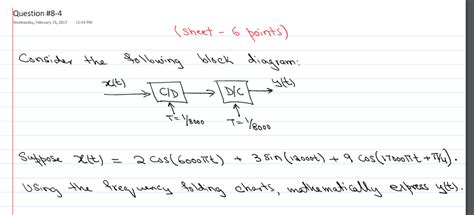 Question #8-4
Wednesday, February 15, 2017 12:43 PM
(Sheet - 6 points)
Consider the following block diagram:
x(t) C/D D/C y(t)
T = 1/8000 T = 1/8000
Suppose x(t) = 2 Cos(6000πt) + 3 Sin(12000t) + 9 Cos(17000πt + π/4).
Using the frequency folding charts, mathematically express y(t).